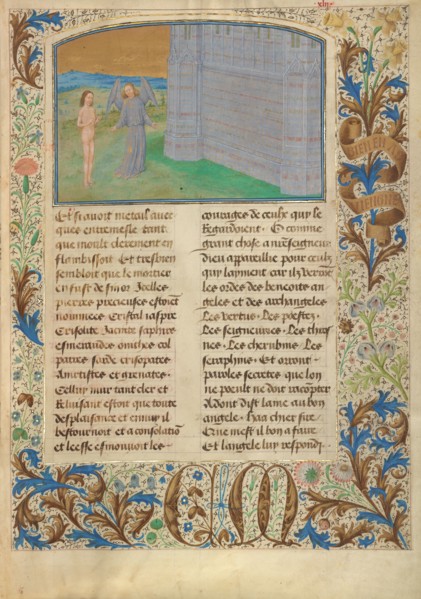 xliii
Et si auoit metail auec
ques entremesle tant
que moult clerement en
flambissoit Et tresbien
sembloit que le mortier
en fust de fin or Jcelles
pierres precieuses estoient
nommees Cristal iaspre
Crisolite Jacinte saphire
esmeraudes oniches
patree sarde crisopatre
Ametistes et grenates.
Celluy mur tant cler et
Reluisant estoit que toute
desplaisance et ennuy il
destournoit et a consolation
et leesse esmouuoit les
courages de ceulx qui le
Regardoient. O comme
grant chose a nreseigneur
dieu appareillie pour ceulx
qui layment car ilz verront
les ordes des benoitz an
geles et des archangeles
Les vertus. Les poestez.
Les seigneuries. Les thro
nes. Les cherubins. Les
seraphins. Et orront
paroles secretes que lon
ne poeult ne doit racopter
Adont dist lame au bon
angele. Haa chier sire
Que mest il bon a faire
Et langele luy respondi.
CM